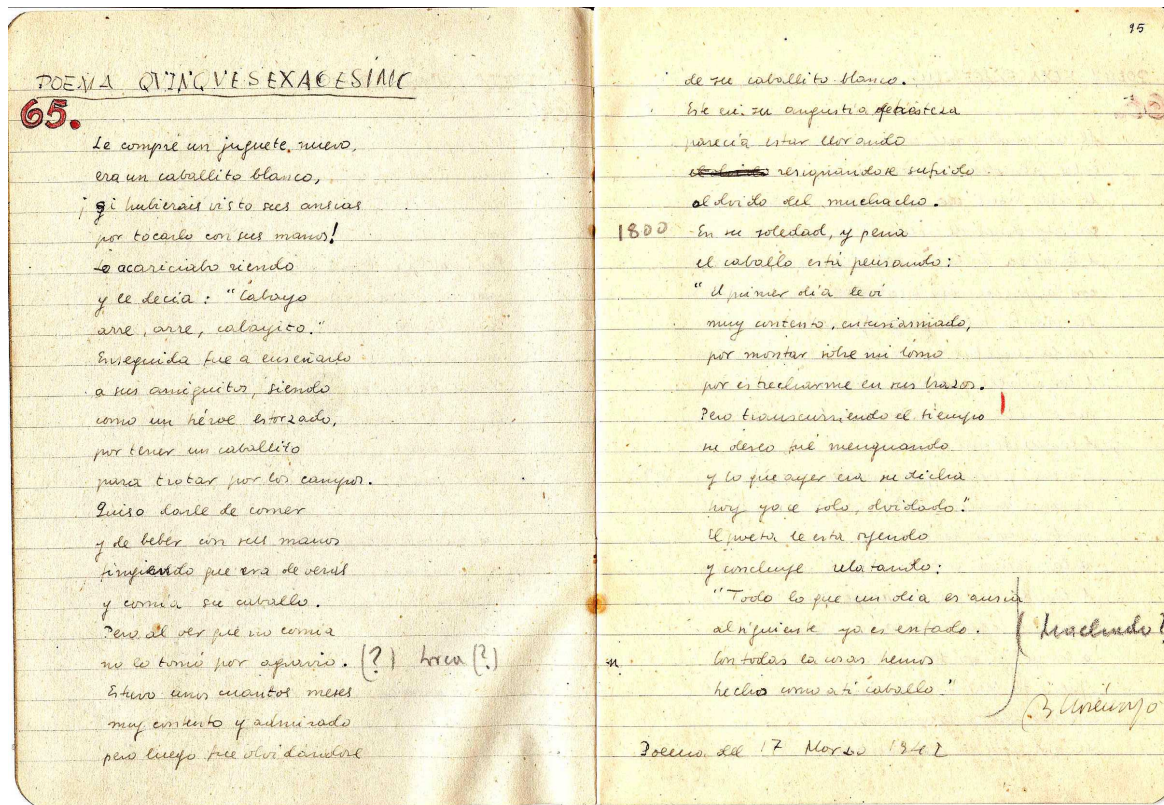 POEMA QVINQVESEXAGESIMO
65.
Le compré un juguete nuevo,
era un caballito blanco,
¡si hubierais visto sus ansias
por tocarlo con sus manos!
Le acariciabo riendo
y le decia: "Cabayo
arre, arre, cabayito."
Enseguida fue a enseñarlo
a sus amiguitos, siendo
como un héroe esforzado,
por tener un caballito
para trotar por los campos.
Quiso darle de comer
y de beber con sus manos
fingiendo que era de veras
y comia su caballo.
Pero al ver que no comia
no lo tomó por agravio. (?) Lorca (?)
Estuvo unos cuantos meses
muy contento y admirado
pero luego fue olvidandose
95
de su caballito blanco.
Este en su angustia de tristeza
parecía estar llorando
resignándose sufrido
al olvido del muchacho.
1800 En su soledad, y pena
el caballo está pensando:
"El primer día le vi
muy contento, entusiasmado,
por montar sobre mi lomo
por estrecharme en sus brazos.
Pero transcurriendo el tiempo
su deseo fué menguando
y lo que ayer era su dicha
hoy ya e solo, olvidado."
El poeta le esta oyendo
y concluye relatando:
"Todo lo que un día es ansia
al siguiente ya es enfado. Machado?
Con todas la cosas hemos
hecho como a ti caballo."
Poema del 17 Marzo 1942